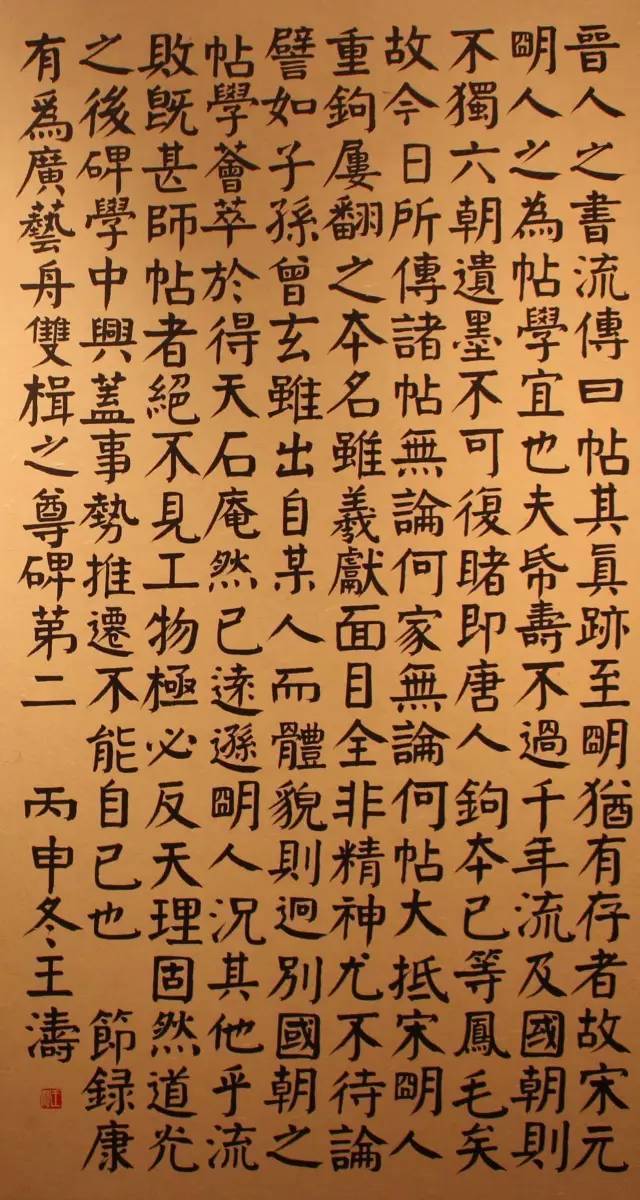 晉人之書流傳曰帖其眞跡至朙猶有存者故宋元
朙人之為帖學宜也夫帋壽不過千年流及國朝則
不獨六朝遺墨不可復睹即唐人鉤夲已等鳳毛矣
故今日所傳諸帖無論何家無論何帖大抵宋朙人
重鉤屢翻之夲名雖羲獻面目全非精神尤不待論
譬如子孫曾玄雖出自某人而體貌則迥別國朝之
帖學薈萃於得天石庵然已遠遜朙人況其他乎流
敗既甚師帖者絕不見工物極必反天理固然道光
之後碑學中興蓋事勢推遷不能自已也 節録康
有爲廣藝舟雙楫之尊碑苐二 丙申冬王濤